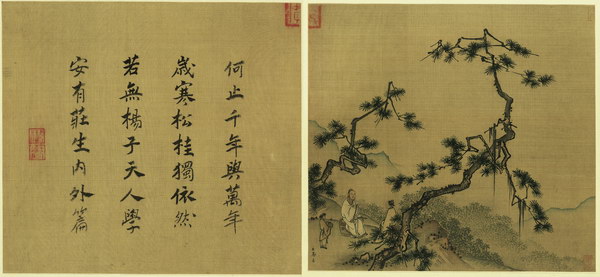 何止千年與萬年
歲寒松桂獨依然
若無楊子天人學
安有莊生內外篇